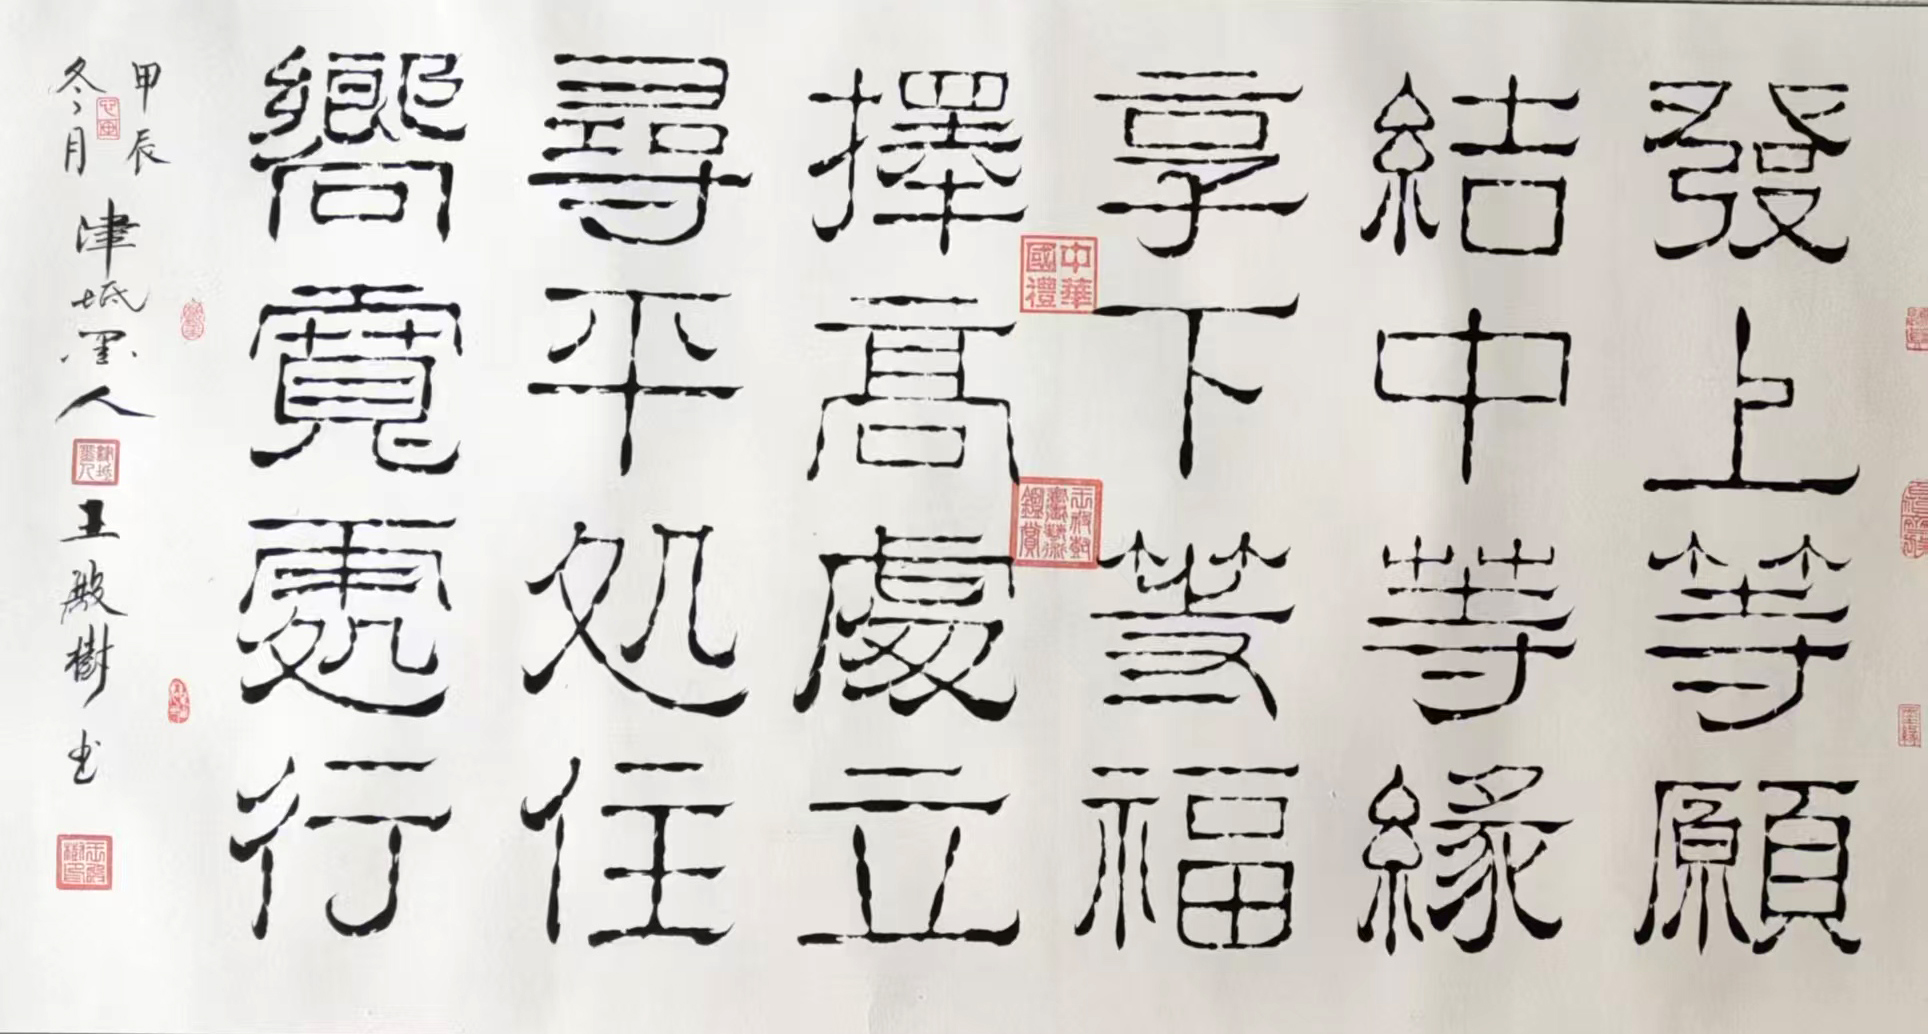 發上等願
結中等緣
享下等福
中華國禮
擇高處立
尋平処住
嚮寬處行
甲辰
冬月 津坻墨人 王殿樹书
王殿樹印